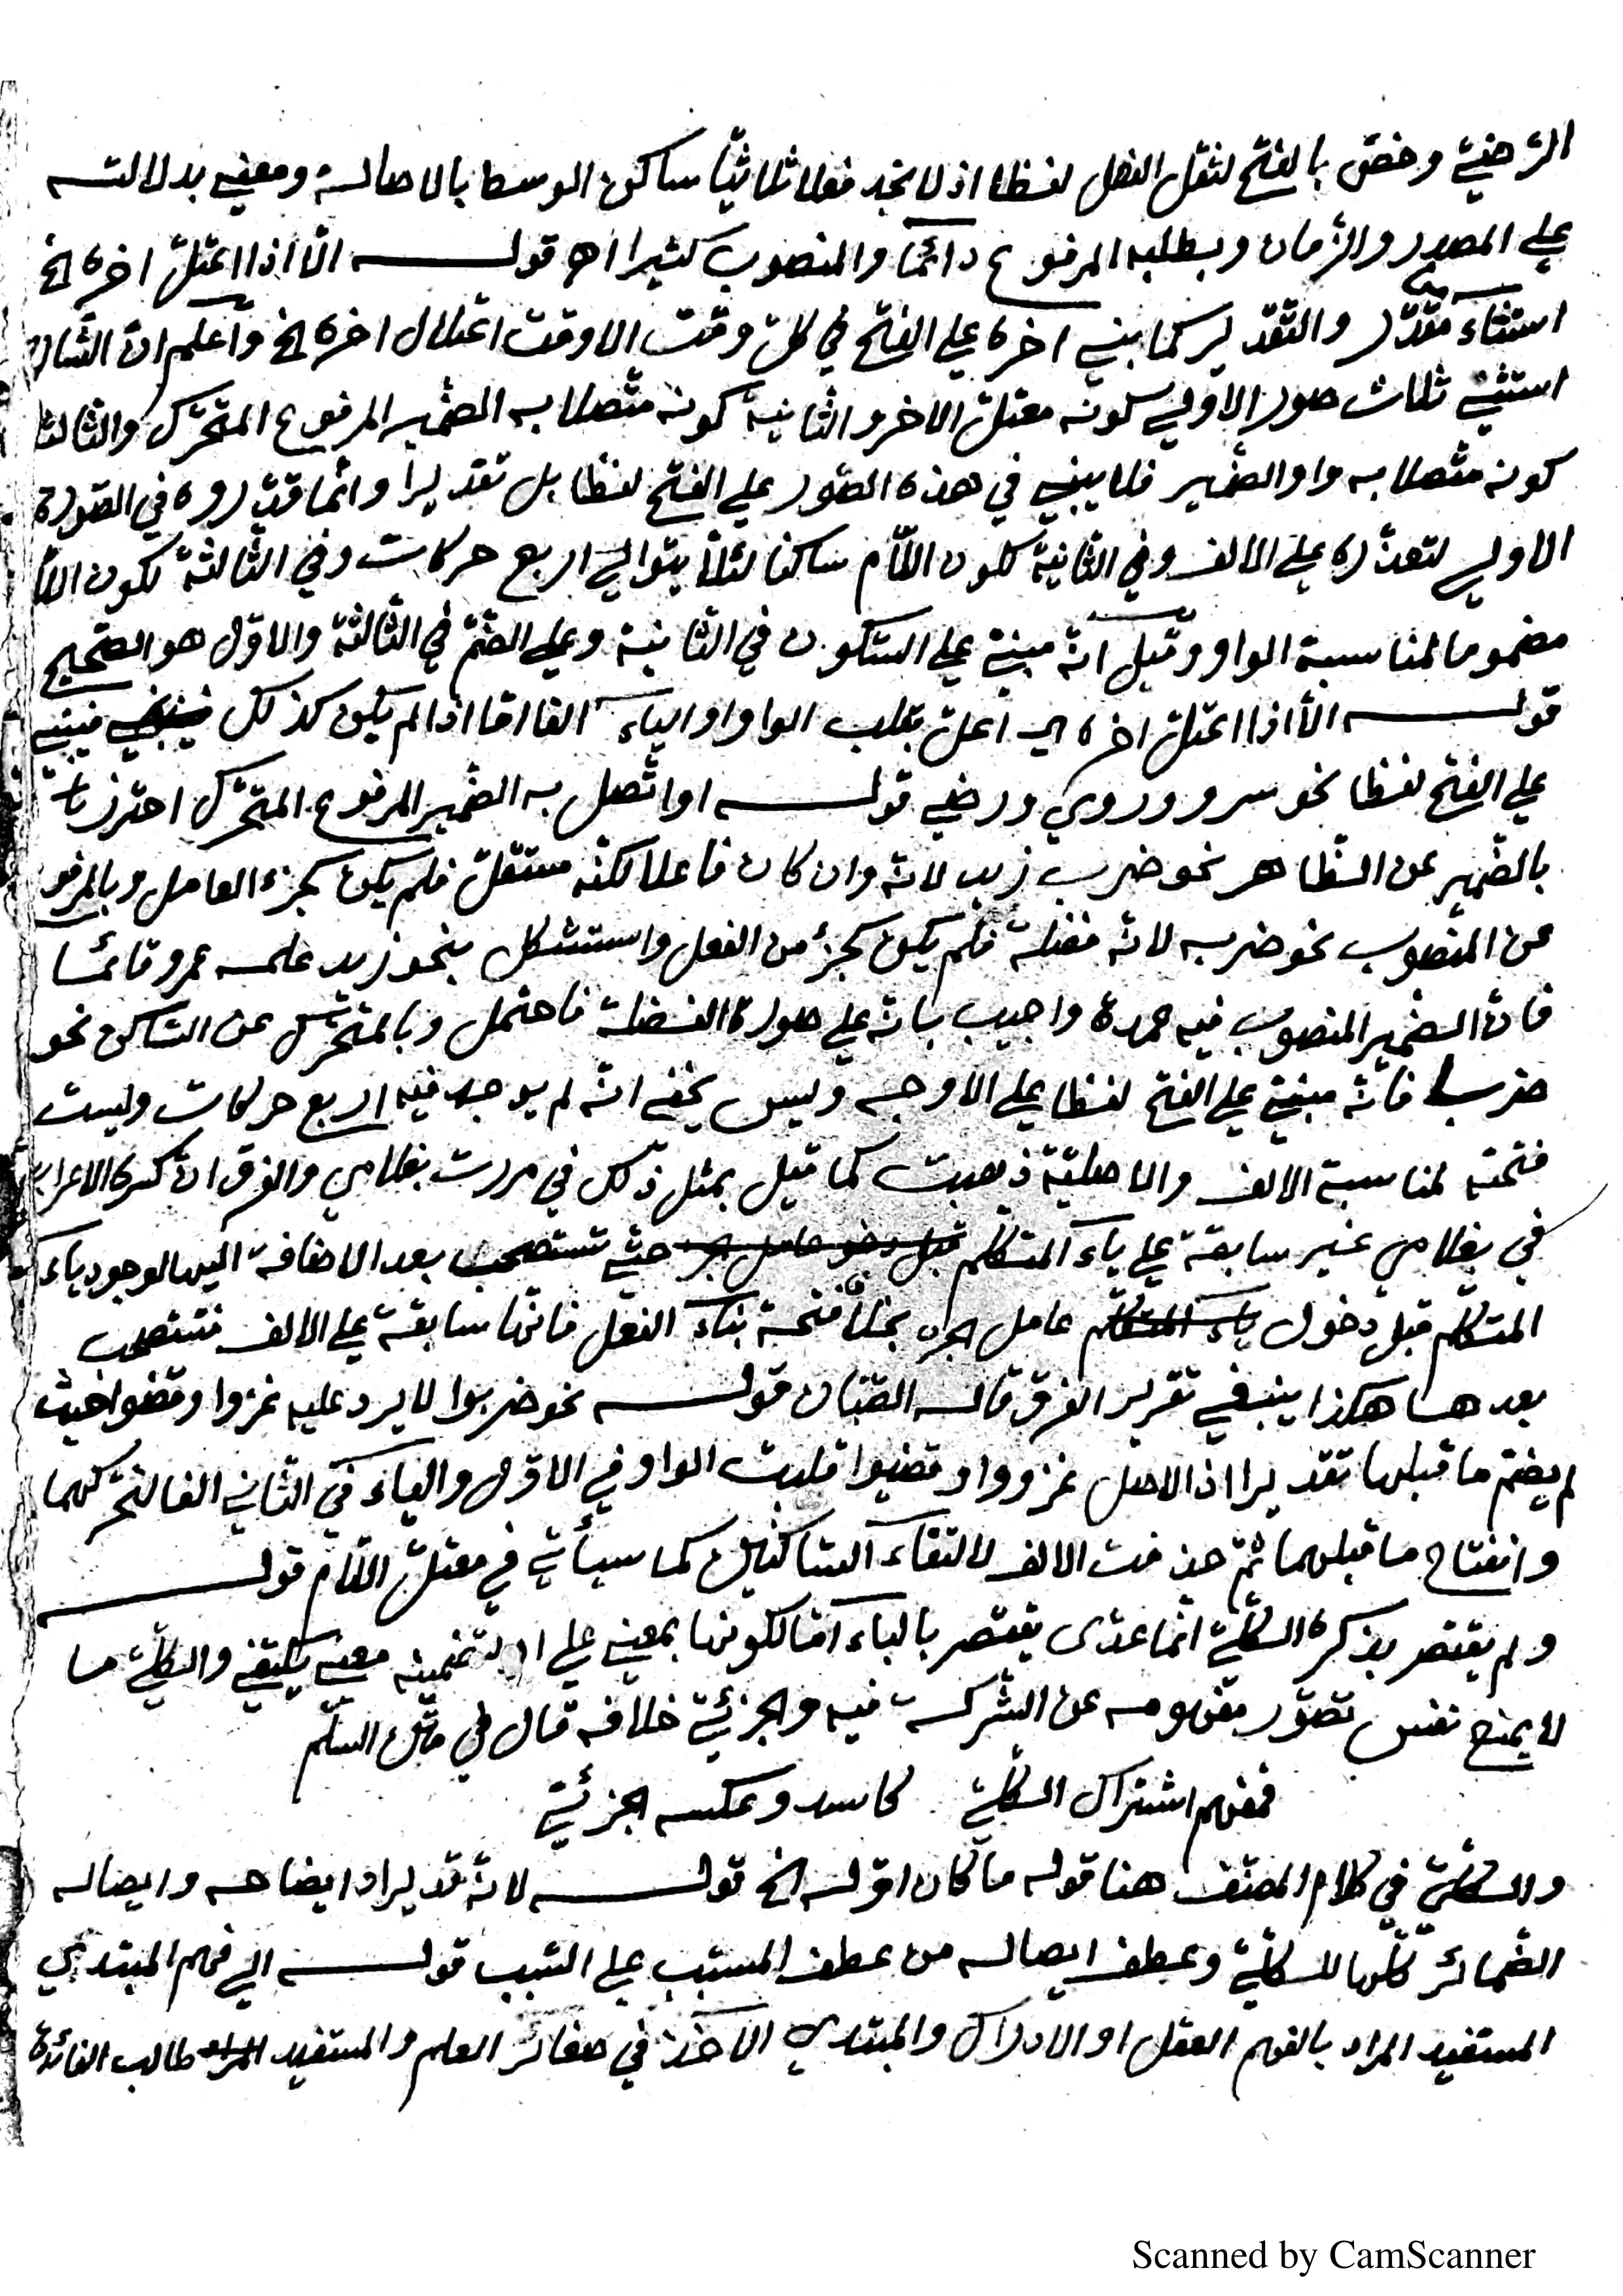 الرضيّ وخصّ بالفتح لثقل الفعل لفظا اذ لا تجد فعلا ثلاثيّا ساكن الوسط بالاصالة ومعنى بدلالته
على المصدر والزّمان وبطلبه المرفوع دائمًا والمنصوب كثيرا اهـ قولـه الّا اذا اعتلّ اخره الخ
استثناء مقدّر والتّقدير كما بني اخره على الفتح في كلّ وقت الا وقت اعتلال اخره الخ واعلم انّ الشّارح
استثنى ثلاث صور الاولى كونه معتلّ الاخر والثانية كونه متّصلا به الضّمير المرفوع المتحرّك والثالثة
كونه متّصلا به واو الضّمير فلا يبنى في هذه الصّور على الفتح لفظا بل تقديرا وانّما قدّروه في الصّورة
الاولى لتعذّره على الالف وفي الثانية لكون اللّام ساكنا لئلّا يتوالى اربع حركات وفي الثّالثة لكون اللّام
مضموما لمناسبة الواو وقيل انّه مبنيّ على السّكون في الثانية وعلى الضّمّ في الثّالثة والاوّل هو الصّحيح
قولـه الّا اذا اعتلّ اخره اي اعلّ بقلب الواو او الياء الفا امّا اذا لم يكن كذلك فيبنى
على الفتح لفظا نحو سرو وروي ورضي قولـه او اتّصل به الضّمير المرفوع المتحرّك احترز
بالضّمير عن الظّاهر نحو ضرب زيد لانّه وان كان فاعلا لكنّه مستقلّ فلم يكن كجزء العامل وبالمرفوع
عن المنصوب نحو ضربه لانّه فضلة فلم يكن كجزء من الفعل واستشكل بنحو زيد علمه عمرو قائما
فانّ الضّمير المنصوب فيه عمدة واجيب بانّه على صورة الفضلة فاحتمل وبالمتحرّك عن السّاكن نحو
ضربا فانّه مبنيّ على الفتح لفظا على الاوجه وليس يخفى انّه لم يوجد فيه اربع حركات وليست
فتحته لمناسبة الالف والاصليّة ذهبت كما قيل بمثل ذلك في مررت بغلامي والفرق انّ كسرة الاعراب
في بغلامي غير سابقة على ياء المتكلّم قبل دخول عامل الجر حتّى تستصحب بعد الاضافة اليها لوجود ياء
المتكلّم قبل دخول ياء المتكلّم عامل الجر بخلاف فتحة بناء الفعل فانّها سابقة على الالف فتستصحب
بعدهـا هكذا ينبغي تقرير الفرق قاله الصّبّان قولـه نحو ضربوا لا يرد عليه غزوا وقضوا حيث
لم يضمّ ما قبلها تقديرا اذ الاصل غزووا وقضيوا قلبت الواو في الاوّل والياء في الثّاني الفا لتحرّكهما
وانفتاح ما قبلهما ثمّ حذفت الالف لالتقاء السّاكنين كما سيأتي في معتلّ اللّام قولـه
ولم يقتصر بذكره الكلّيّ انّما عدّى يقتصر بالباء امّا لكونها بمعنى على او لتضمينه معنى يكتفي والكلّيّ ما
لا يمنع نفس تصوّر مفهومه عن الشركة فيه والجزئيّ خلافه قال في متن السلّم
فمفهم اشتراك الكلّيّ كاسد وعكسه الجزئيّ
والكلّيّ في كلام المصنّف هنا قوله ما كان اوّله الخ قولـه لانّه قد يراد ايضاحه وايصاله
الضّمائر كلّها للكلّيّ وعطف ايصاله من عطف المسبّب على السّبب قولـه الى فهم المبتدي
المستفيد المراد بالفهم العقل او الادراك والمبتدي الاخذ في صغائر العلم والمستفيد المراد طالب الفائدة
Scanned by CamScanner